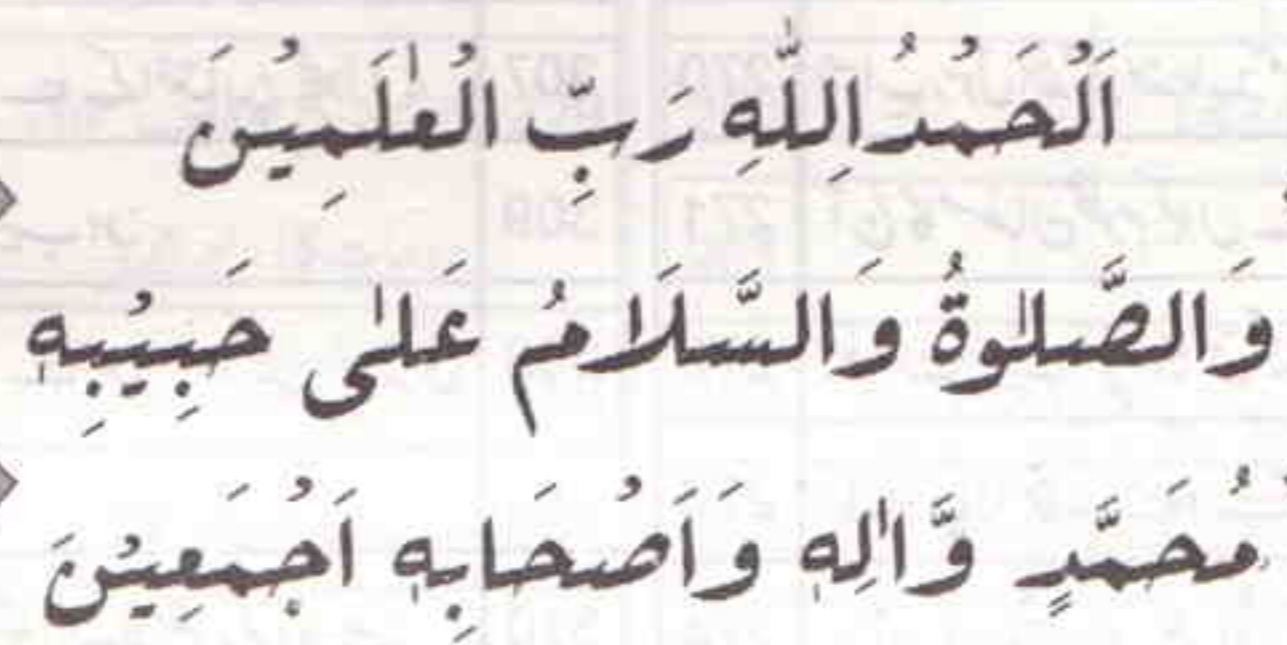 اَلْحَمْدُ اِللّٰهِ رَبِّ الْعٰلَمِیْنَ
وَالصَّلٰوةُ وَالسَّلَامُ عَلٰی حَبِیْبِهٖ
مُحَمَّدٍ وَّاٰلِهٖ وَاَصْحَابِهٖ اَجْمَعِیْنَ